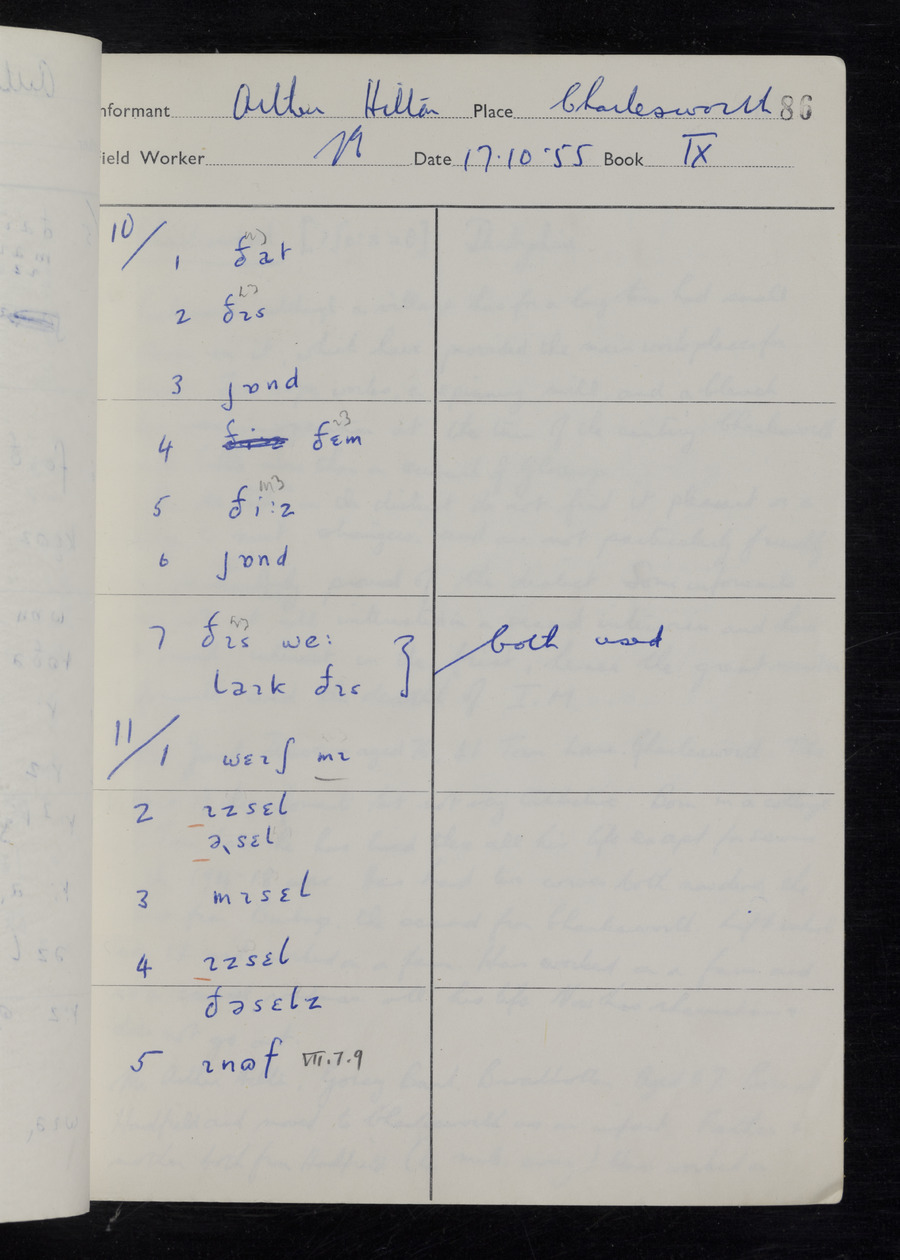 Informant Arthur Hilton Place Charlesworth 86
Field Worker Date 17.10.55 Book IX
10/
1 ðat
2 ðɪs
3 jɒnd
4 ðɛm
5 ðiːz
6 jɒnd
7 ðɪs weː } both used
laɪk ðɪs
11/
1 wɛɪʃ mɪ
2 ɪzsɛl
əˌsɛl
3 mɪsɛl
4 ɪzsɛl
ðəsɛlz
5 ɪnɷf VII.7.9